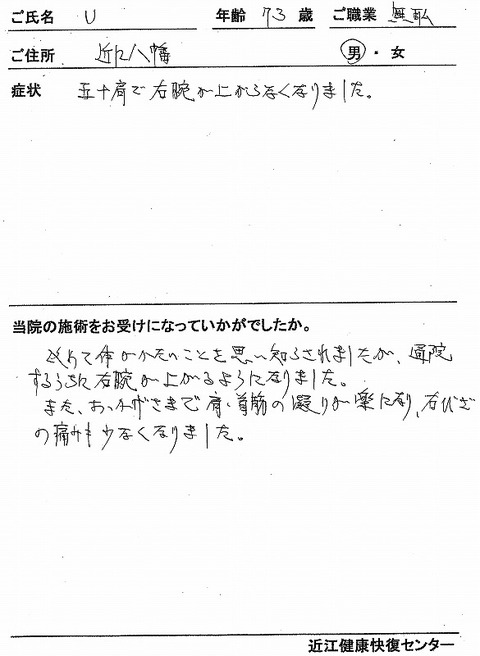 ご氏名 U 年齢 73 歳 ご職業 無職
ご住所 近江八幡 男・女
症状 五十肩で右腕が上がらなくなりました。
当院の施術をお受けになっていかがでしたか。
改めて体がかたいことを思い知らされましたが、通院
するうちに右腕が上がるようになりました。
また、おかげさまで肩・首筋の凝りが楽になり、右ひざ
の痛みも少なくなりました。
近江健康快復センター